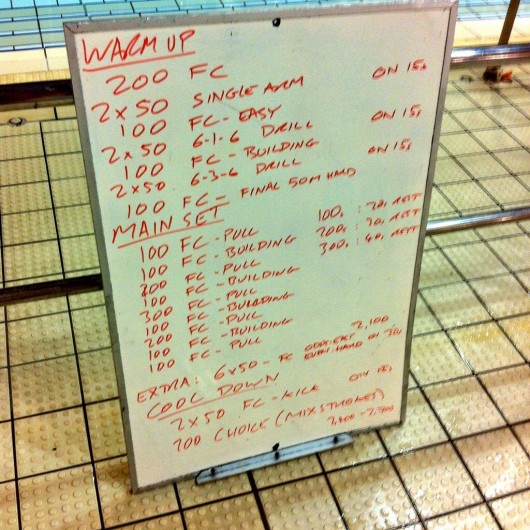 WARM UP
200 FC
2x50 SINGLE ARM ON 15s
100 FC - EASY
2x50 6-1-6 DRILL ON 15s
100 FC - BUILDING
2x50 6-3-6 DRILL ON 15s
100 FC - FINAL 50M HARD
MAIN SET
100 FC - PULL 100s : 20s REST
100 FC - BUILDING 200s : 30s REST
200 FC - PULL 300s : 40s REST
100 FC - BUILDING
300 FC - PULL
100 FC - BUILDING
200 FC - PULL
100 FC - BUILDING
100 FC - PULL
2,100
EXTRA: 6x50 - FC EVEN-HARD ON 30s
COOL DOWN
2x50 FC - KICK ON 15s
200 CHOICE (MIX STROKES)
2,400 - 2,700